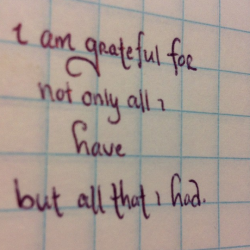 i am grateful for
not only all i
have
but all that i had.